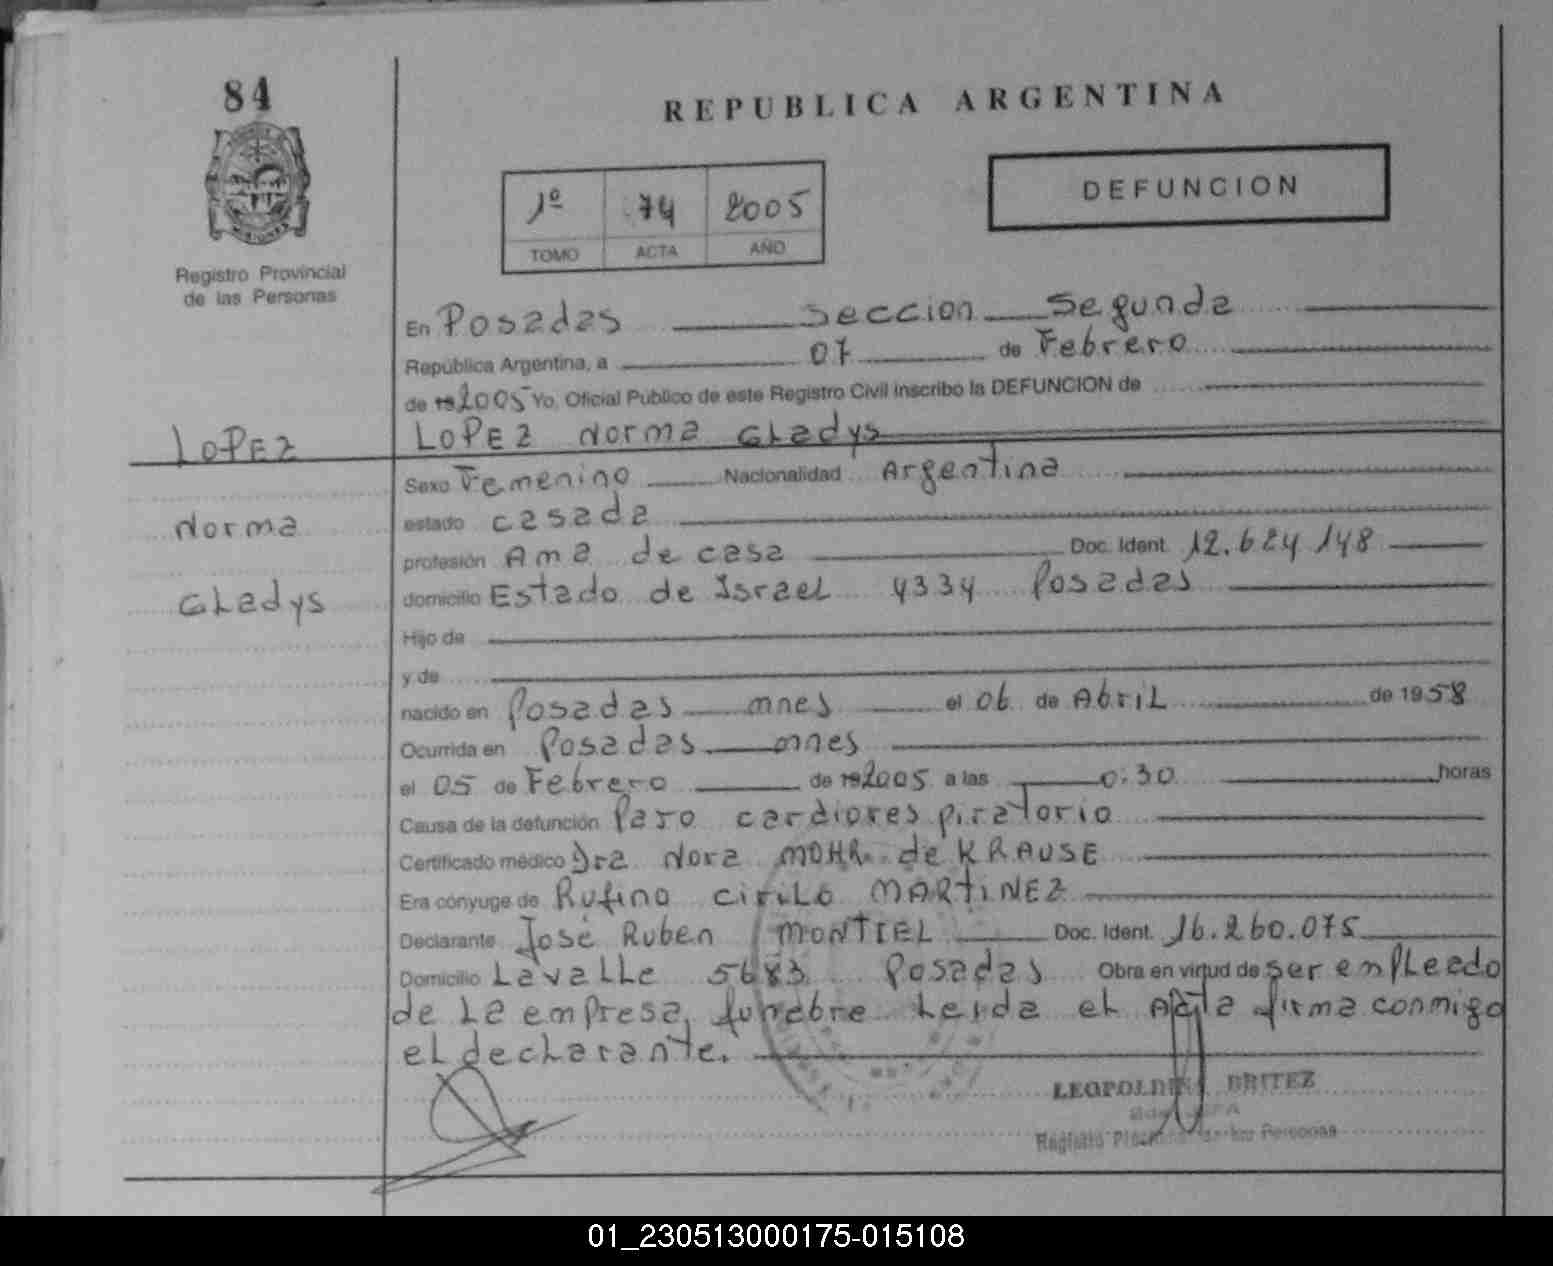 84
REPUBLICA ARGENTINA
1º 74 2005
TOMO ACTA AÑO
DEFUNCION
MISIONES
Registro Provincial
de las Personas
En Posadas seccion segunda
República Argentina, a 07 de Febrero
de 19 2005 Yo, Oficial Público de este Registro Civil inscribo la DEFUNCION de
LOPEZ
LOPEZ Norma GLadys
Sexo Femenino Nacionalidad Argentina
Norma
estado casada
profesión Ama de casa Doc. Ident. 12.624.148
GLadys
domicilio Estado de Israel 4334 Posadas
Hijo de
y de
nacido en Posadas mnes el 06 de Abril de 1958
Ocurrida en Posadas mnes
el 05 de Febrero de 19 2005 a las 0:30 horas
Causa de la defunción Paro cardiorespiratorio
Certificado médico Dra Nora MOHR de KRAUSE
Era cónyuge de Rufino cirilo MARTINEZ
Declarante José Ruben MONTIEL Doc. Ident. 16.260.075
Domicilio Lavalle 5683 Posadas Obra en virtud de ser empleado
de la empresa funebre Leida el Acta firma conmigo
el declarante.
BRITEZ
Registro Personas
01_230513000175-015108